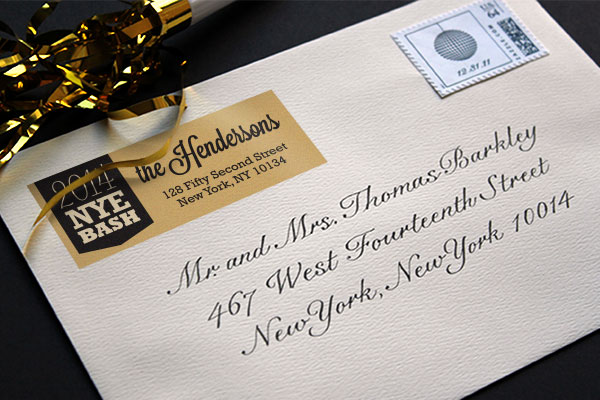 2014
NYE
BASH
the Hendersons
128 Fifty Second Street
New York, NY 10134
12.31.11
Mr. and Mrs. Thomas Barkley
467 West Fourteenth Street
New York, New York 10014